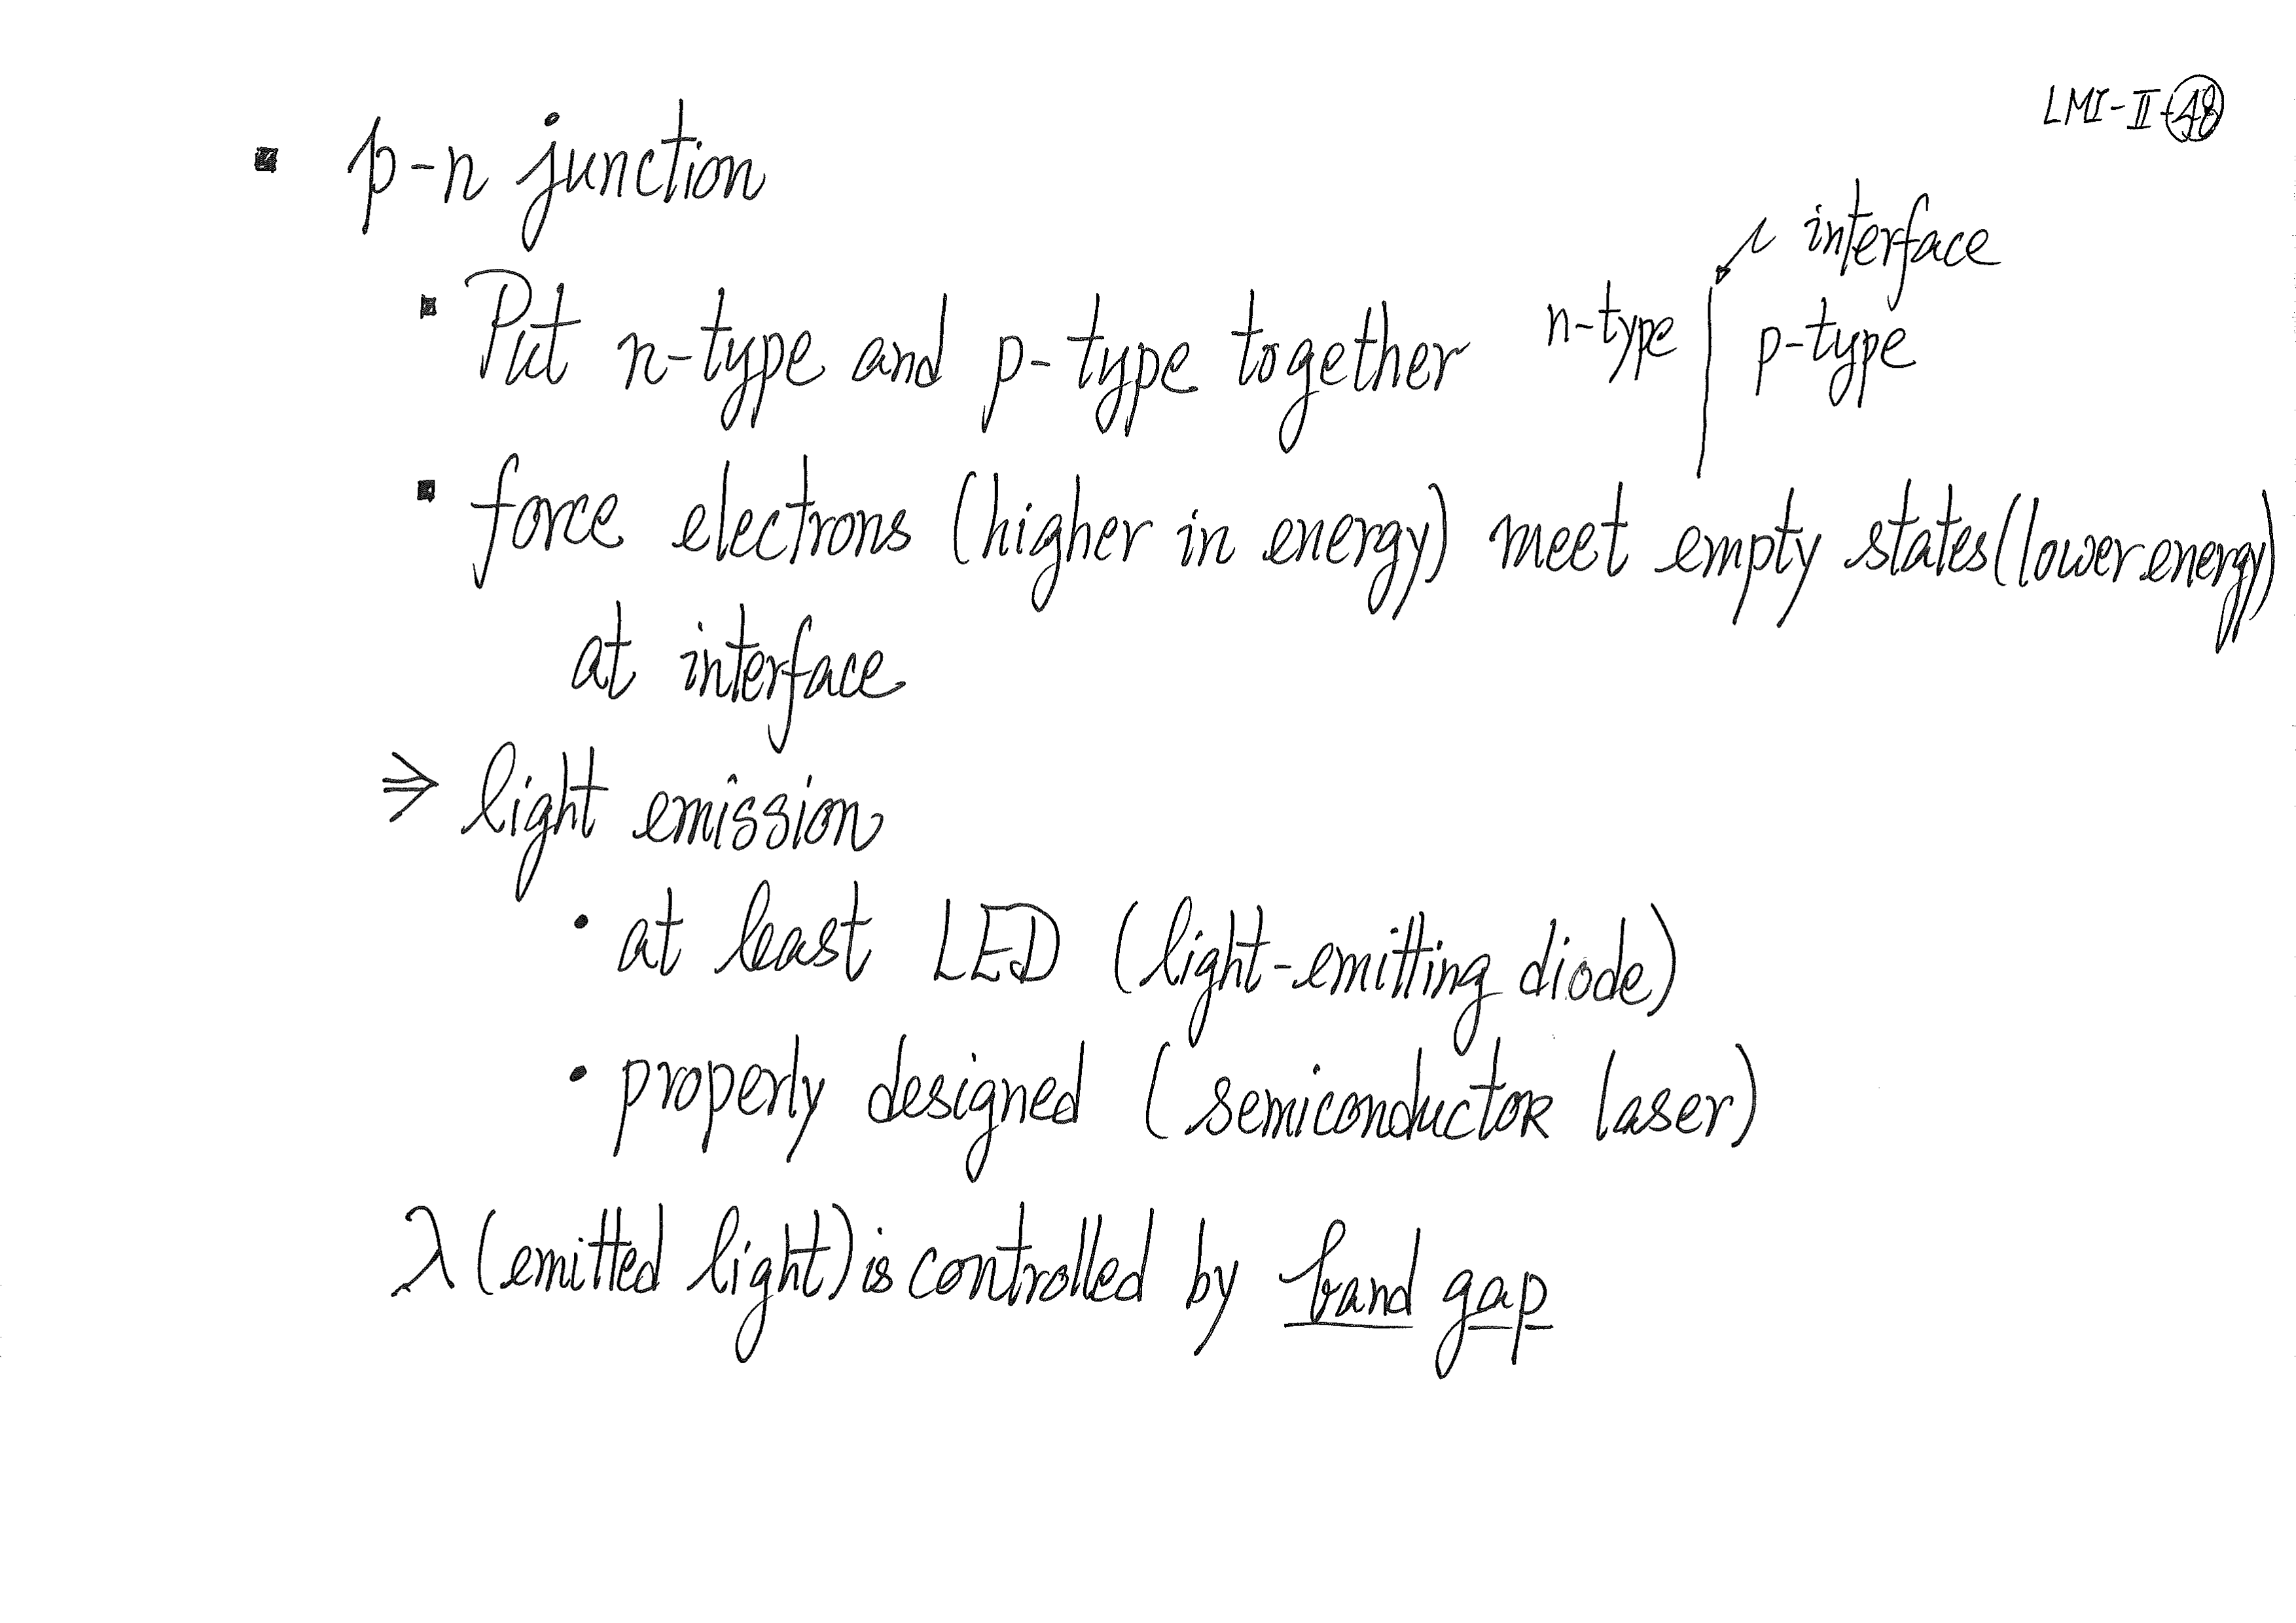 LMI-II-48
▪ p-n junction
interface
▪ Put n-type and p-type together
n-type | p-type
▪ force electrons (higher in energy) meet empty states (lower energy)
at interface
⇒ light emission
• at least LED (light-emitting diode)
• properly designed (semiconductor laser)
λ (emitted light) is controlled by band gap